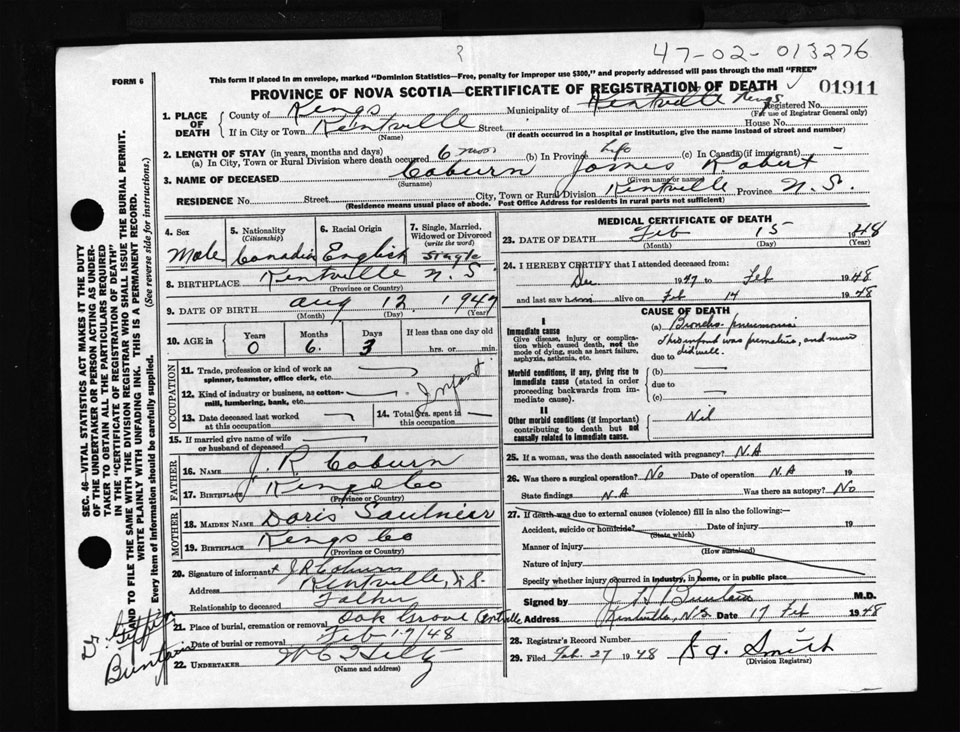 47-02-013276
FORM 6
This form if placed in an envelope, marked "Dominion Statistics—Free, penalty for improper use $300," and properly addressed will pass through the mail "FREE"
PROVINCE OF NOVA SCOTIA—CERTIFICATE OF REGISTRATION OF DEATH
01911
1. PLACE OF DEATH
County of Kings Municipality of Kentville Kings Registered No.
(For use of Registrar General only)
If in City or Town Kentville Street House No.
(Name) (If death occurred in a hospital or institution, give the name instead of street and number)
2. LENGTH OF STAY (in years, months and days)
(a) In City, Town or Rural Division where death occurred 6 mos (b) In Province Life (c) In Canada (if immigrant) —
3. NAME OF DECEASED Coburn James Robert
(Surname) (Given name or names)
RESIDENCE No. Street City, Town or Rural Division Kentville Province N.S.
(Residence means usual place of abode. Post Office Address for residents in rural parts not sufficient)
4. Sex Male
5. Nationality (Citizenship) Canadian
6. Racial Origin English
7. Single, Married, Widowed or Divorced (write the word) Single
8. BIRTHPLACE Kentville N.S.
(Province or Country)
9. DATE OF BIRTH Aug 12 1947
(Month) (Day) (Year)
10. AGE in Years 0 Months 6 Days 3 If less than one day old
hrs. or min.
OCCUPATION
11. Trade, profession or kind of work as spinner, teamster, office clerk, etc. —
12. Kind of industry or business, as cotton-mill, lumbering, bank, etc. — Infant
13. Date deceased last worked at this occupation —
14. Total yrs. spent in this occupation —
15. If married give name of wife or husband of deceased —
FATHER
16. Name J. R. Coburn
17. Birthplace Kings Co
(Province or Country)
MOTHER
18. MAIDEN NAME Doris Saulnier
19. BIRTHPLACE Kings Co
(Province or Country)
20. Signature of informant J R Coburn
Address Kentville, N.S.
Relationship to deceased Father
21. Place of burial, cremation or removal Oak Grove Kentville
Date of burial or removal Feb 17/48
22. UNDERTAKER W C Hiltz
(Name and address)
MEDICAL CERTIFICATE OF DEATH
23. DATE OF DEATH Feb 15 1948
(Month) (Day) (Year)
24. I HEREBY CERTIFY that I attended deceased from:
Dec 1947 to Feb 1948
and last saw him alive on Feb 14 1948
CAUSE OF DEATH
I
Immediate cause
Give disease, injury or complication which caused death, not the mode of dying, such as heart failure, asphyxia, asthenia, etc.
(a) Broncho-pneumonia
This infant was premature, and never
due to did well.
Morbid conditions, if any, giving rise to immediate cause (stated in order proceeding backwards from immediate cause).
(b) —
due to
(c) —
II
Other morbid conditions (if important) contributing to death but not causally related to immediate cause.
Nil
25. If a woman, was the death associated with pregnancy? N.A
26. Was there a surgical operation? No Date of operation N.A 19
State findings N.A Was there an autopsy? No
27. If death was due to external causes (violence) fill in also the following:—
Accident, suicide or homicide? Date of injury 19
(State which)
Manner of injury
(How sustained)
Nature of injury
Specify whether injury occurred in industry, in home, or in public place
Signed by M.D.
Address Kentville, N.S. Date 17 Feb 1948
28. Registrar's Record Number
29. Filed Feb. 27 1948 Smith
(Division Registrar)
SEC. 46—VITAL STATISTICS ACT MAKES IT THE DUTY
OF THE UNDERTAKER OR PERSON ACTING AS UNDER-
TAKER TO OBTAIN ALL THE PARTICULARS REQUIRED
IN THE "CERTIFICATE OF REGISTRATION OF DEATH"
AND TO FILE THE SAME WITH THE DIVISION REGISTRAR WHO SHALL ISSUE THE BURIAL PERMIT.
WRITE PLAINLY WITH UNFADING INK. THIS IS A PERMANENT RECORD.
Every item of information should be carefully supplied. (See reverse side for instructions.)
Dr.